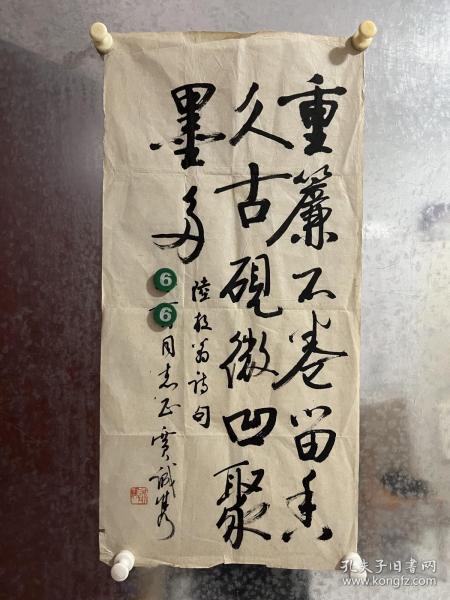 重簾不卷留香
久古硯微凹聚
墨多
陸放翁詩句
同志正 賈誠隽
6
6
孔夫子旧书网
www.kongfz.com